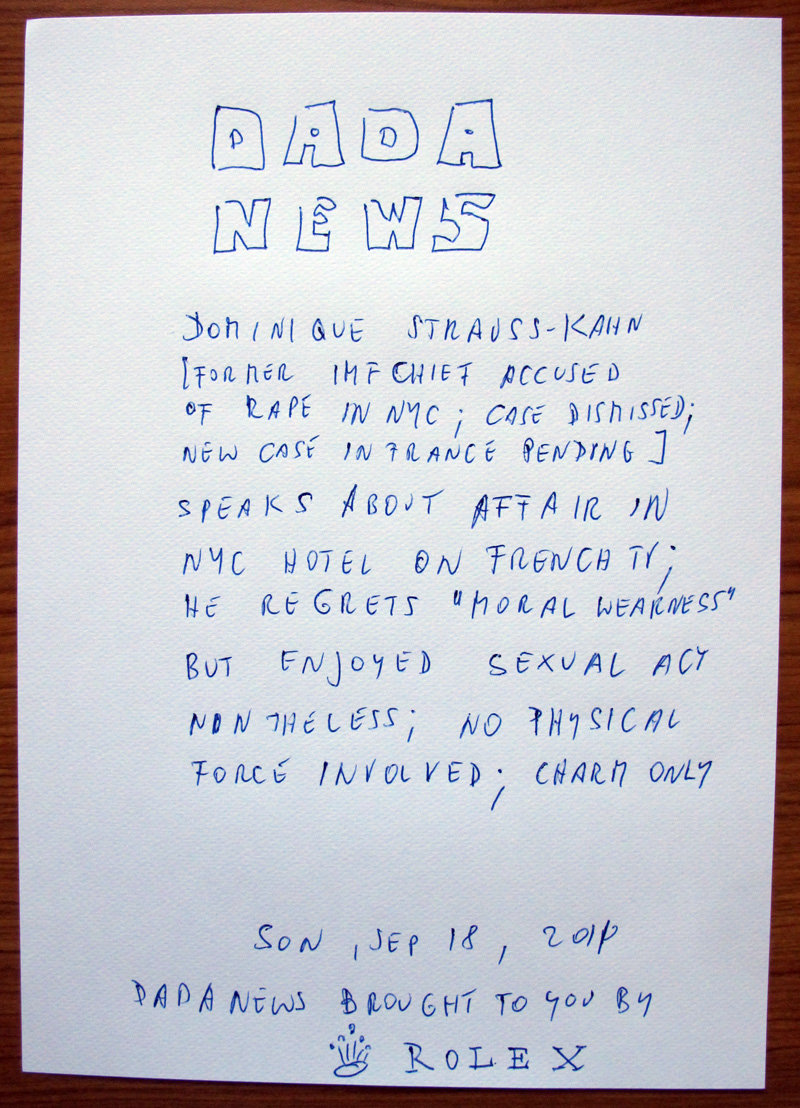 DADA
NEWS
DOMINIQUE STRAUSS-KAHN
[FORMER IMF CHIEF ACCUSED
OF RAPE IN NYC; CASE DISMISSED;
NEW CASE IN FRANCE PENDING]
SPEAKS ABOUT AFFAIR IN
NYC HOTEL ON FRENCH TV;
HE REGRETS "MORAL WEAKNESS"
BUT ENJOYED SEXUAL ACT
NONTHELESS; NO PHYSICAL
FORCE INVOLVED; CHARM ONLY
SON, SEP 18,
DADA NEWS BROUGHT TO YOU BY
ROLEX